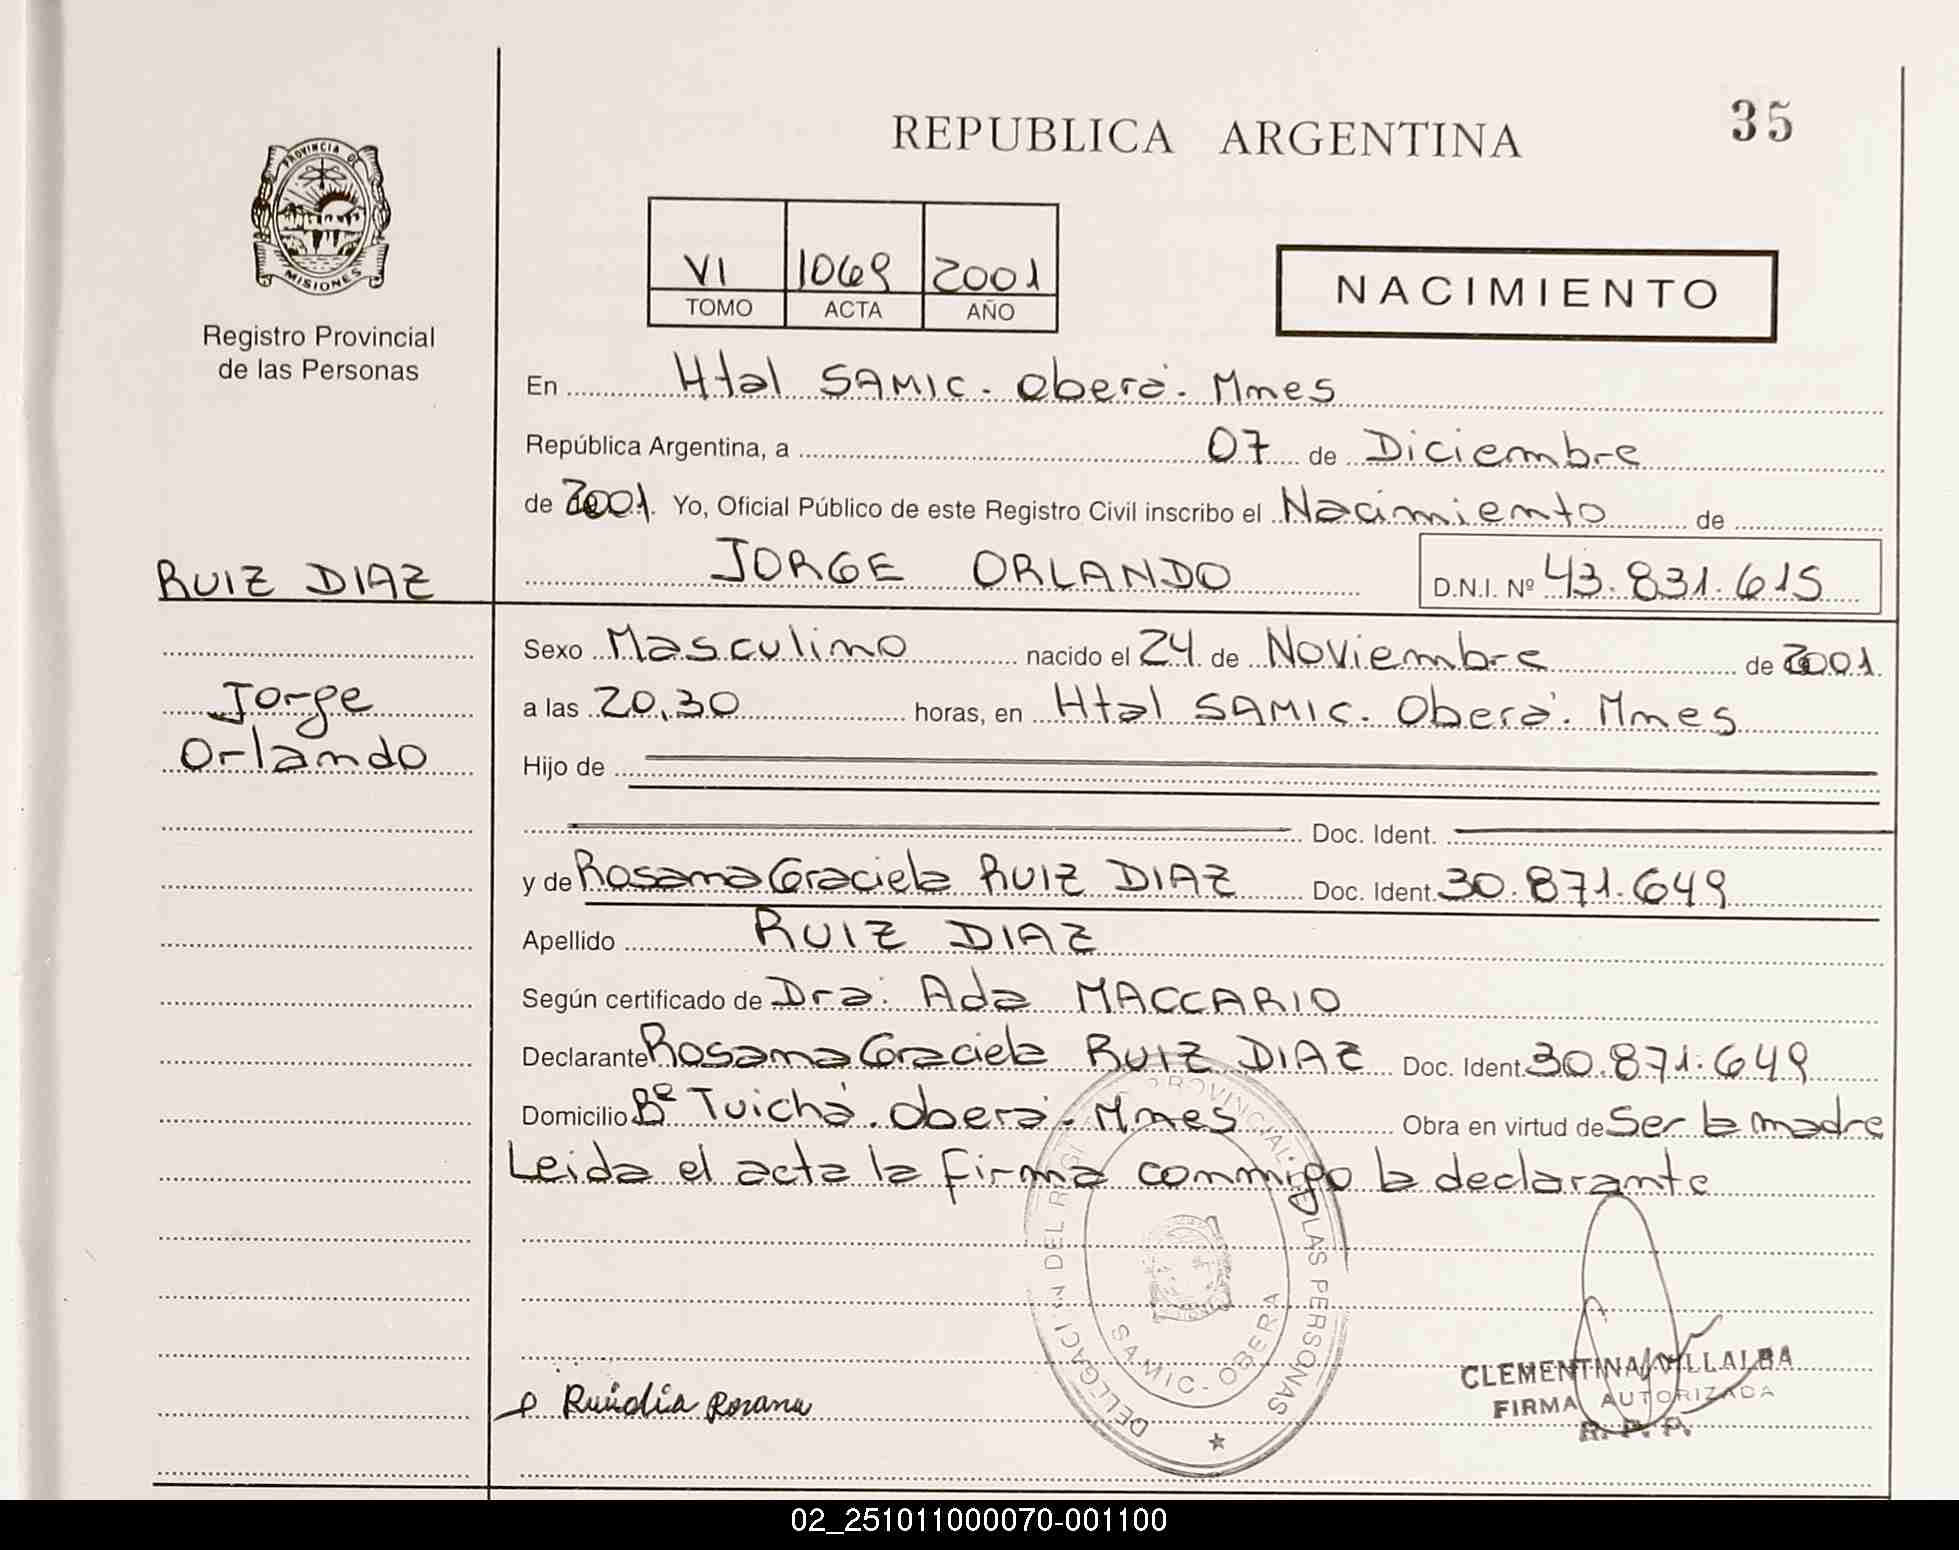 35
REPUBLICA ARGENTINA
PROVINCIA DE
MISIONES
Registro Provincial
de las Personas
VI 1069 2001
TOMO ACTA AÑO
NACIMIENTO
En Htal SAMIC. Oberá. Mnes
República Argentina, a 07 de Diciembre
de 2001 Yo, Oficial Público de este Registro Civil inscribo el Nacimiento de
RUIZ DIAZ
JORGE ORLANDO D.N.I. Nº 43.831.615
Jorge
Orlando
Sexo Masculino nacido el 24 de Noviembre de 2001
a las 20,30 horas, en Htal SAMIC. Oberá. Mnes
Hijo de
Doc. Ident.
y de Rosana Graciela RUIZ DIAZ Doc. Ident. 30.871.649
Apellido RUIZ DIAZ
Según certificado de Dra. Ada MACCARIO
Declarante Rosana Graciela RUIZ DIAZ Doc. Ident. 30.871.649
Domicilio Bº Tuichá. Oberá. Mnes Obra en virtud de Ser la madre
Leida el acta la firma conmigo la declarante
DELEGACION DEL REGISTRO PROVINCIAL DE LAS PERSONAS
SAMIC - OBERA
CLEMENTINA VILLALBA
FIRMA AUTORIZADA
R. P. P.
Rosana
02_251011000070-001100